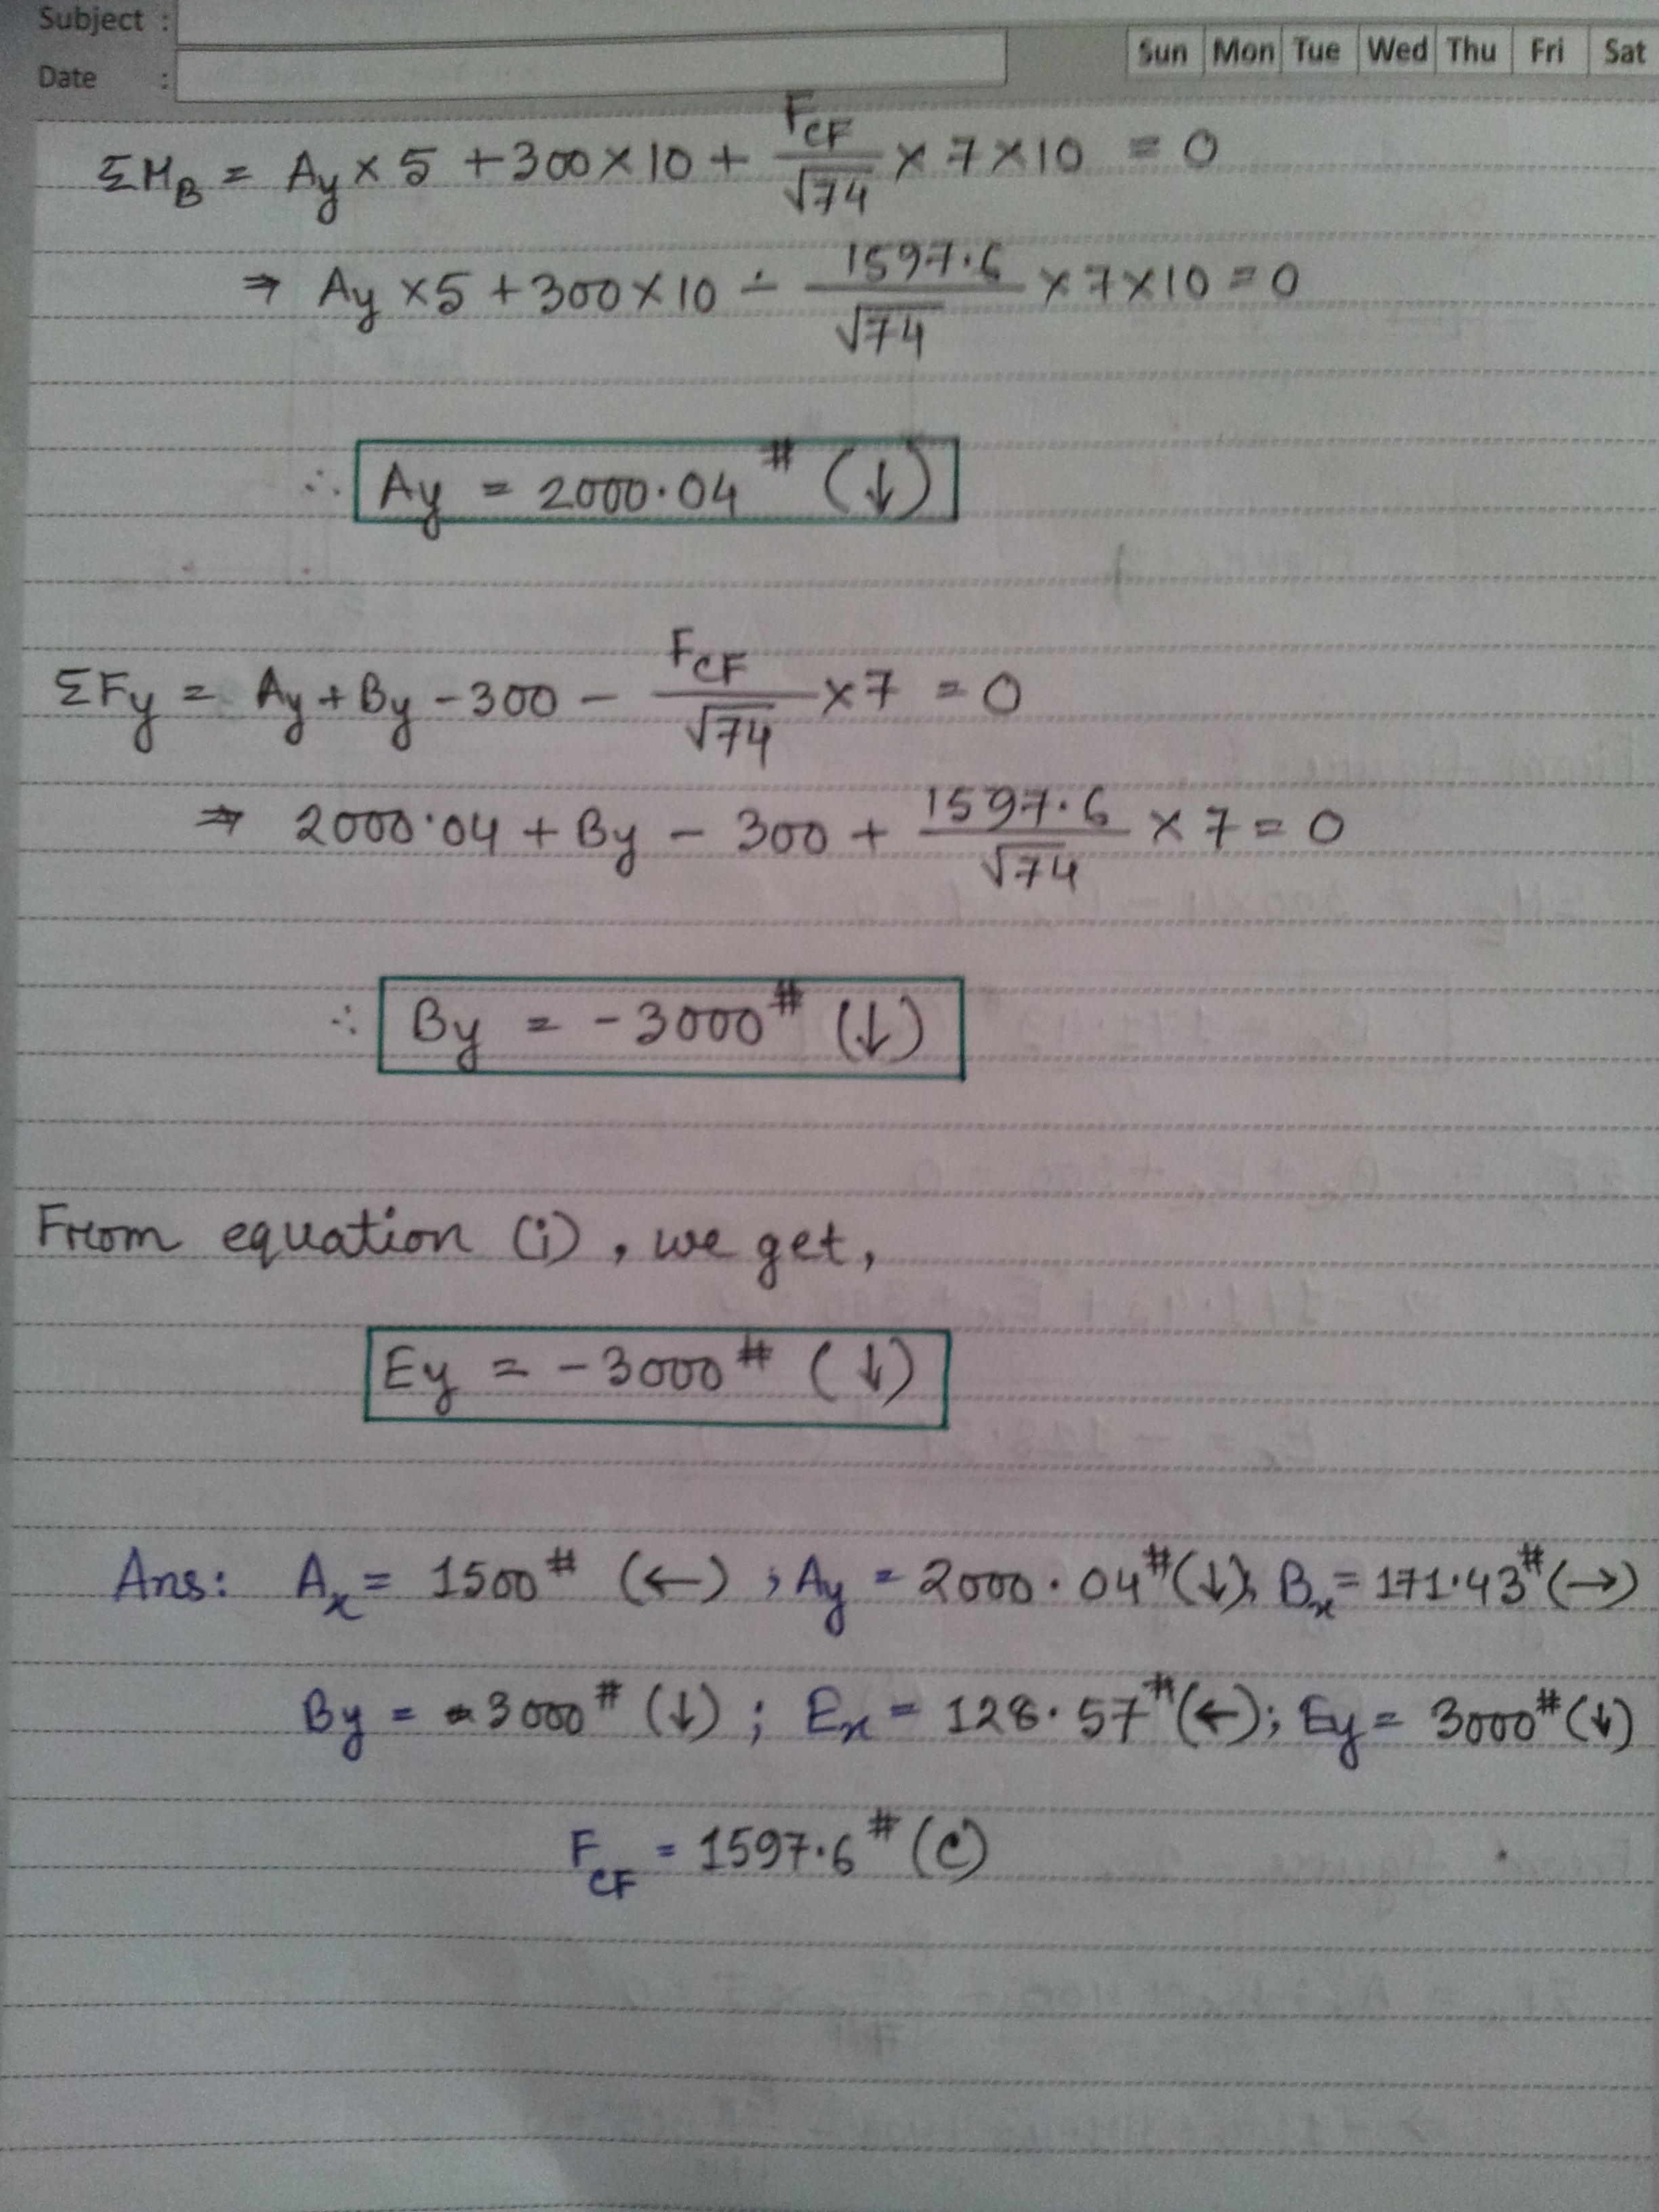 Subject :
Sun Mon Tue Wed Thu Fri Sat
Date :
ΣM_B = Ay × 5 + 300 × 10 + F_CF/√74 × 7 × 10 = 0
⇒ Ay × 5 + 300 × 10 - 1597.6/√74 × 7 × 10 = 0
∴ Ay = 2000.04# (↓)
ΣFy = Ay + By - 300 - F_CF/√74 × 7 = 0
⇒ 2000.04 + By - 300 + 1597.6/√74 × 7 = 0
∴ By = -3000# (↓)
From equation (i), we get,
Ey = -3000# (↓)
Ans: Ax = 1500# (←) ; Ay = 2000.04# (↓); Bx = 171.43# (→)
By = 3000# (↓) ; Ex = 128.57# (←); Ey = 3000# (↓)
F_CF = 1597.6# (C)